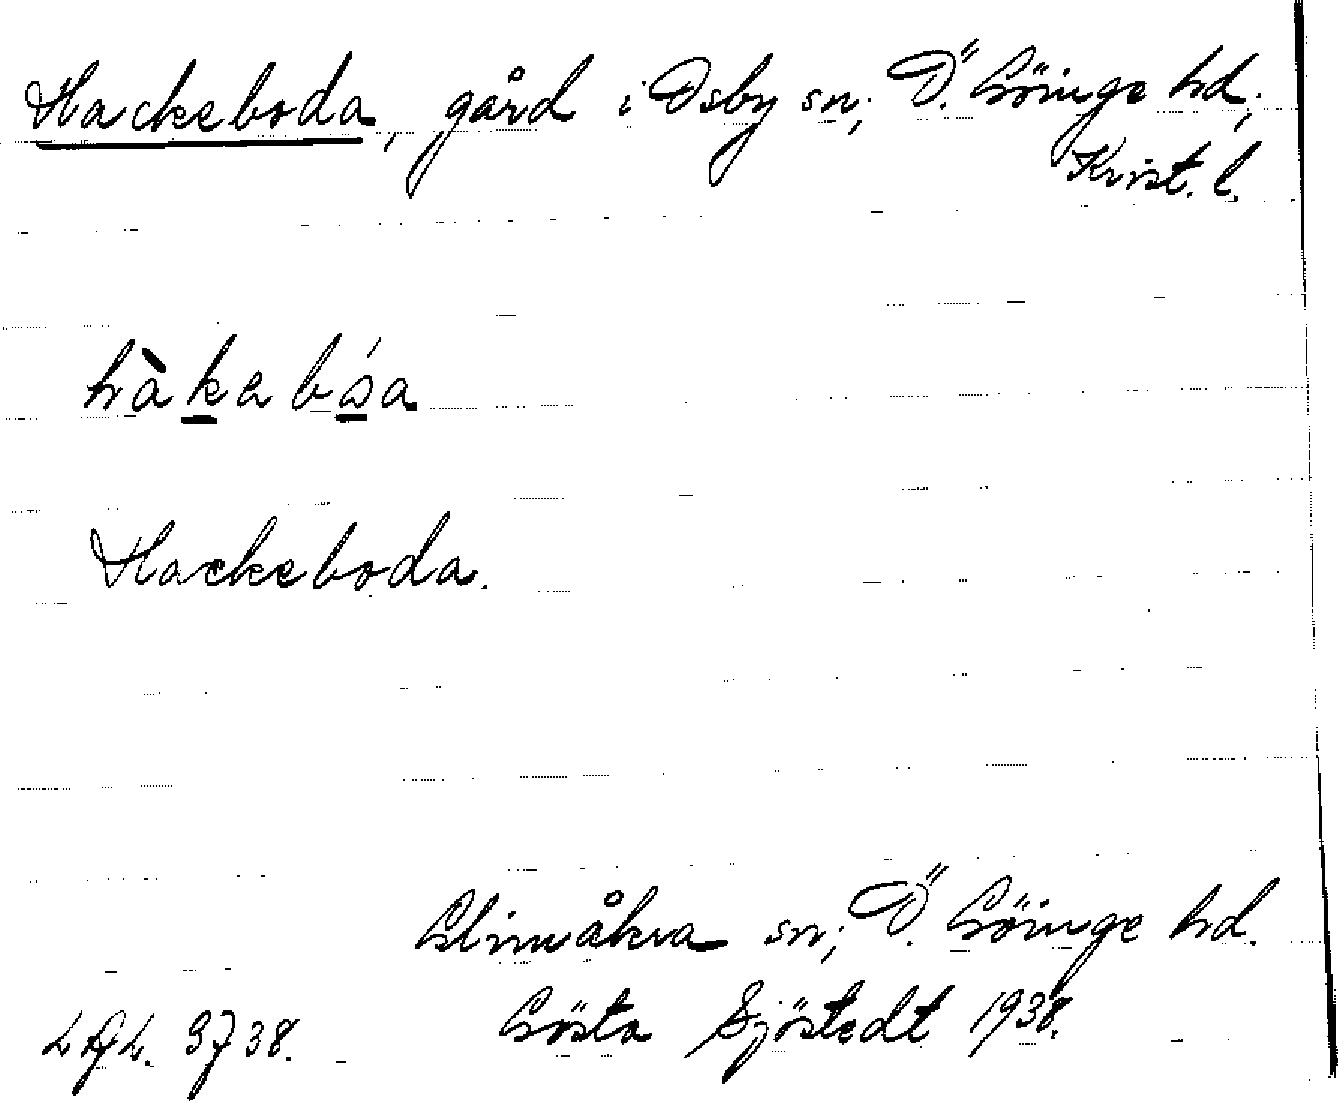 Hackeboda, gård i Osby sn; Ö. Göinge hd;
Krist. l.
hàkabóa
Hackeboda.
Glimåkra sn; Ö. Göinge hd.
Gösta Sjöstedt 1938.